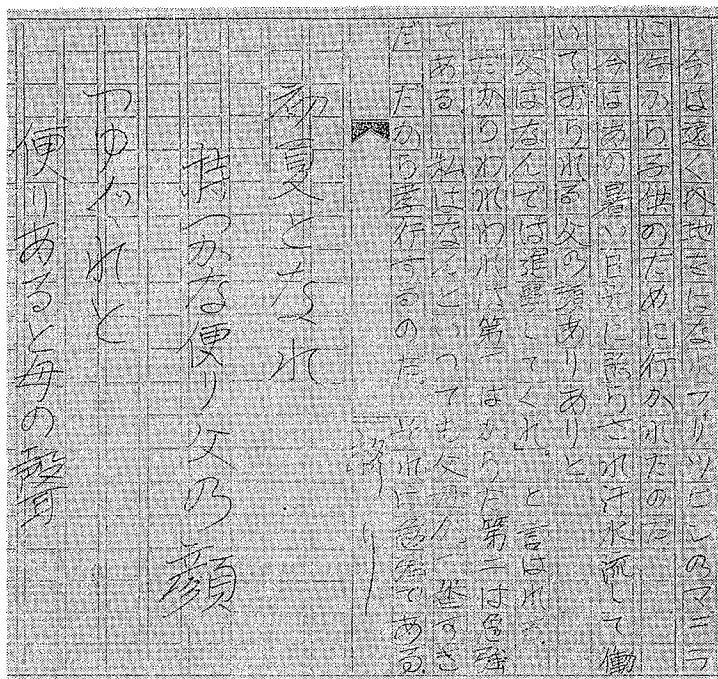 今は遠く内地をはなれフリツピンのマニラ
に吾から子供のために行かれたのだ
今は あの暑い日 に照らされ汗水流して働
いて、おられる父の顔ありありと
父はなんで は 強してくれ」。と言はれる、
だからわれわれは第一はからだ第二は勉強
である、私はなんといつても父 が一 すき
だ だから孝行するのだ。それに勉強である。
便り
初夏となれ
静かな便り父の顔
つゆ れと
便りあると母の聲